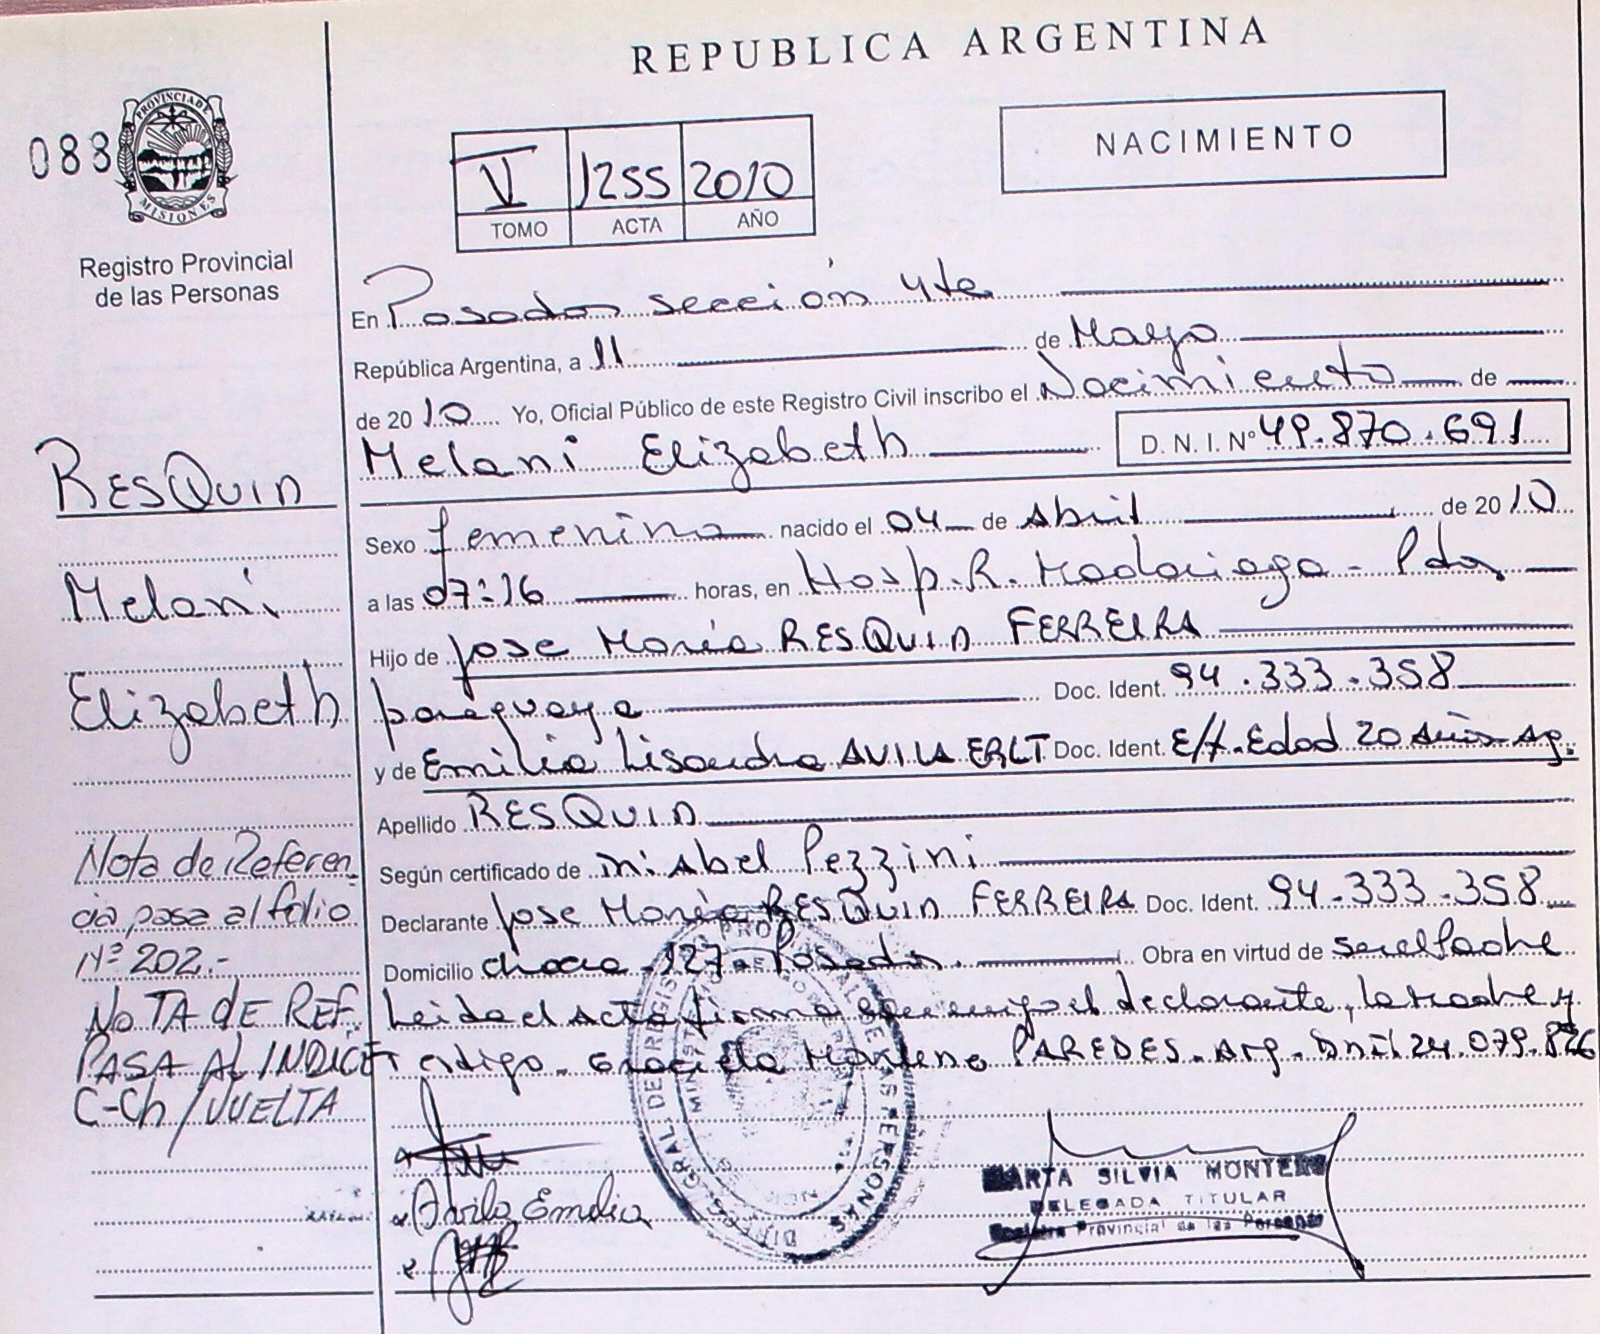 REPUBLICA ARGENTINA
088
PROVINCIA DE
MISIONES
Registro Provincial
de las Personas
V 1255 2010
TOMO ACTA AÑO
NACIMIENTO
En Posadas sección 4ta
República Argentina, a 11 de Mayo
de 2010 Yo, Oficial Público de este Registro Civil inscribo el Nacimiento de
Melani Elizabeth D. N. I. Nº 49.870.691
Sexo femenino nacido el 04 de Abril de 2010
a las 07:16 horas, en Hosp. R. Madariaga - Pdas
Hijo de Jose María RESQUIN FERREIRA
paraguaya Doc. Ident. 94.333.358
y de Emilia Lisandra AVILA Doc. Ident. E/t. Edad 20 Años Ag.
Apellido RESQUIN
Según certificado de Mi Abel Pezzini
Declarante Jose María RESQUIN FERREIRA Doc. Ident. 94.333.358
Domicilio chacra 127 - Posadas. Obra en virtud de ser el Padre
Leida el Acta firma conmigo el declarante, la madre y
testigo. Graciela PAREDES. Arg. Dni 24.079.826
RESQUIN
Melani
Elizabeth
Nota de Referen
cia pasa al folio
Nº 202.-
NOTA DE REF.
PASA AL INDICE
C-Ch/VUELTA
Avila Emilia
MARTA SILVIA MONTERO
DELEGADA TITULAR
Registro Provincial de las Personas